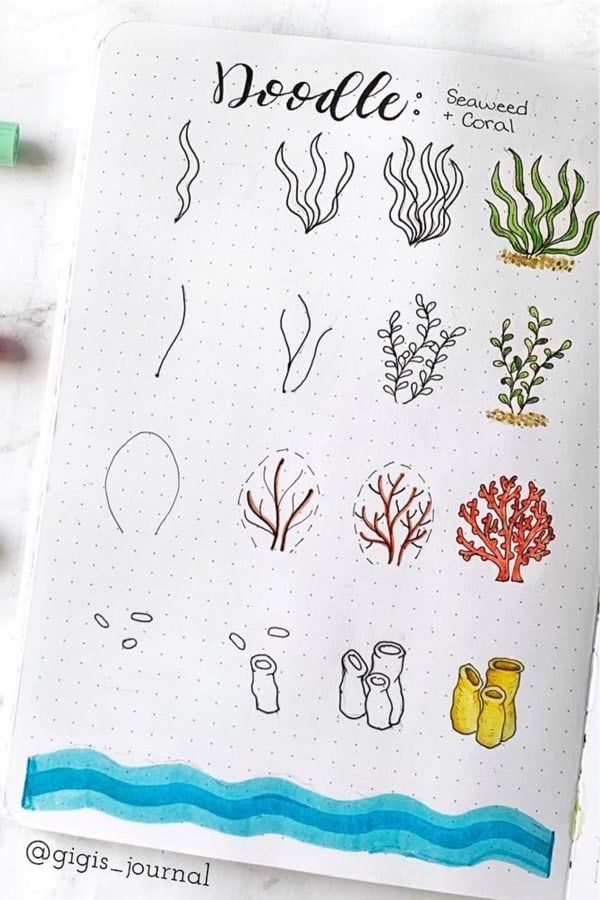 Doodle:
Seaweed
+ Coral
@gigis_journal